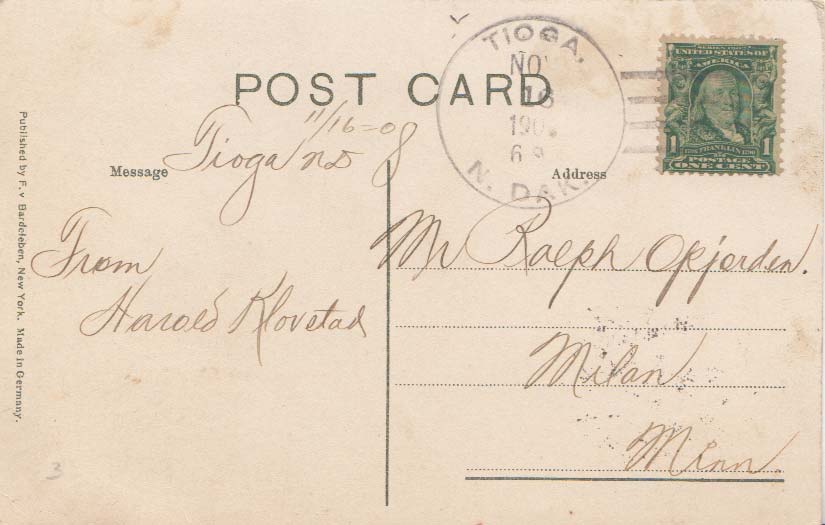 POST CARD
TIOGA.
NOV
16
190
6
N. DAK.
SERIES 1902
UNITED STATES OF
AMERICA
1 FRANKLIN 1
POSTAGE
ONE CENT
Message
Address
11/16=08
Tioga ND
From
Harold Klovstad
Mr Ralph Opjorden.
Milan
Minn.
Published by F. v Bardeleben, New York. Made in Germany.
3